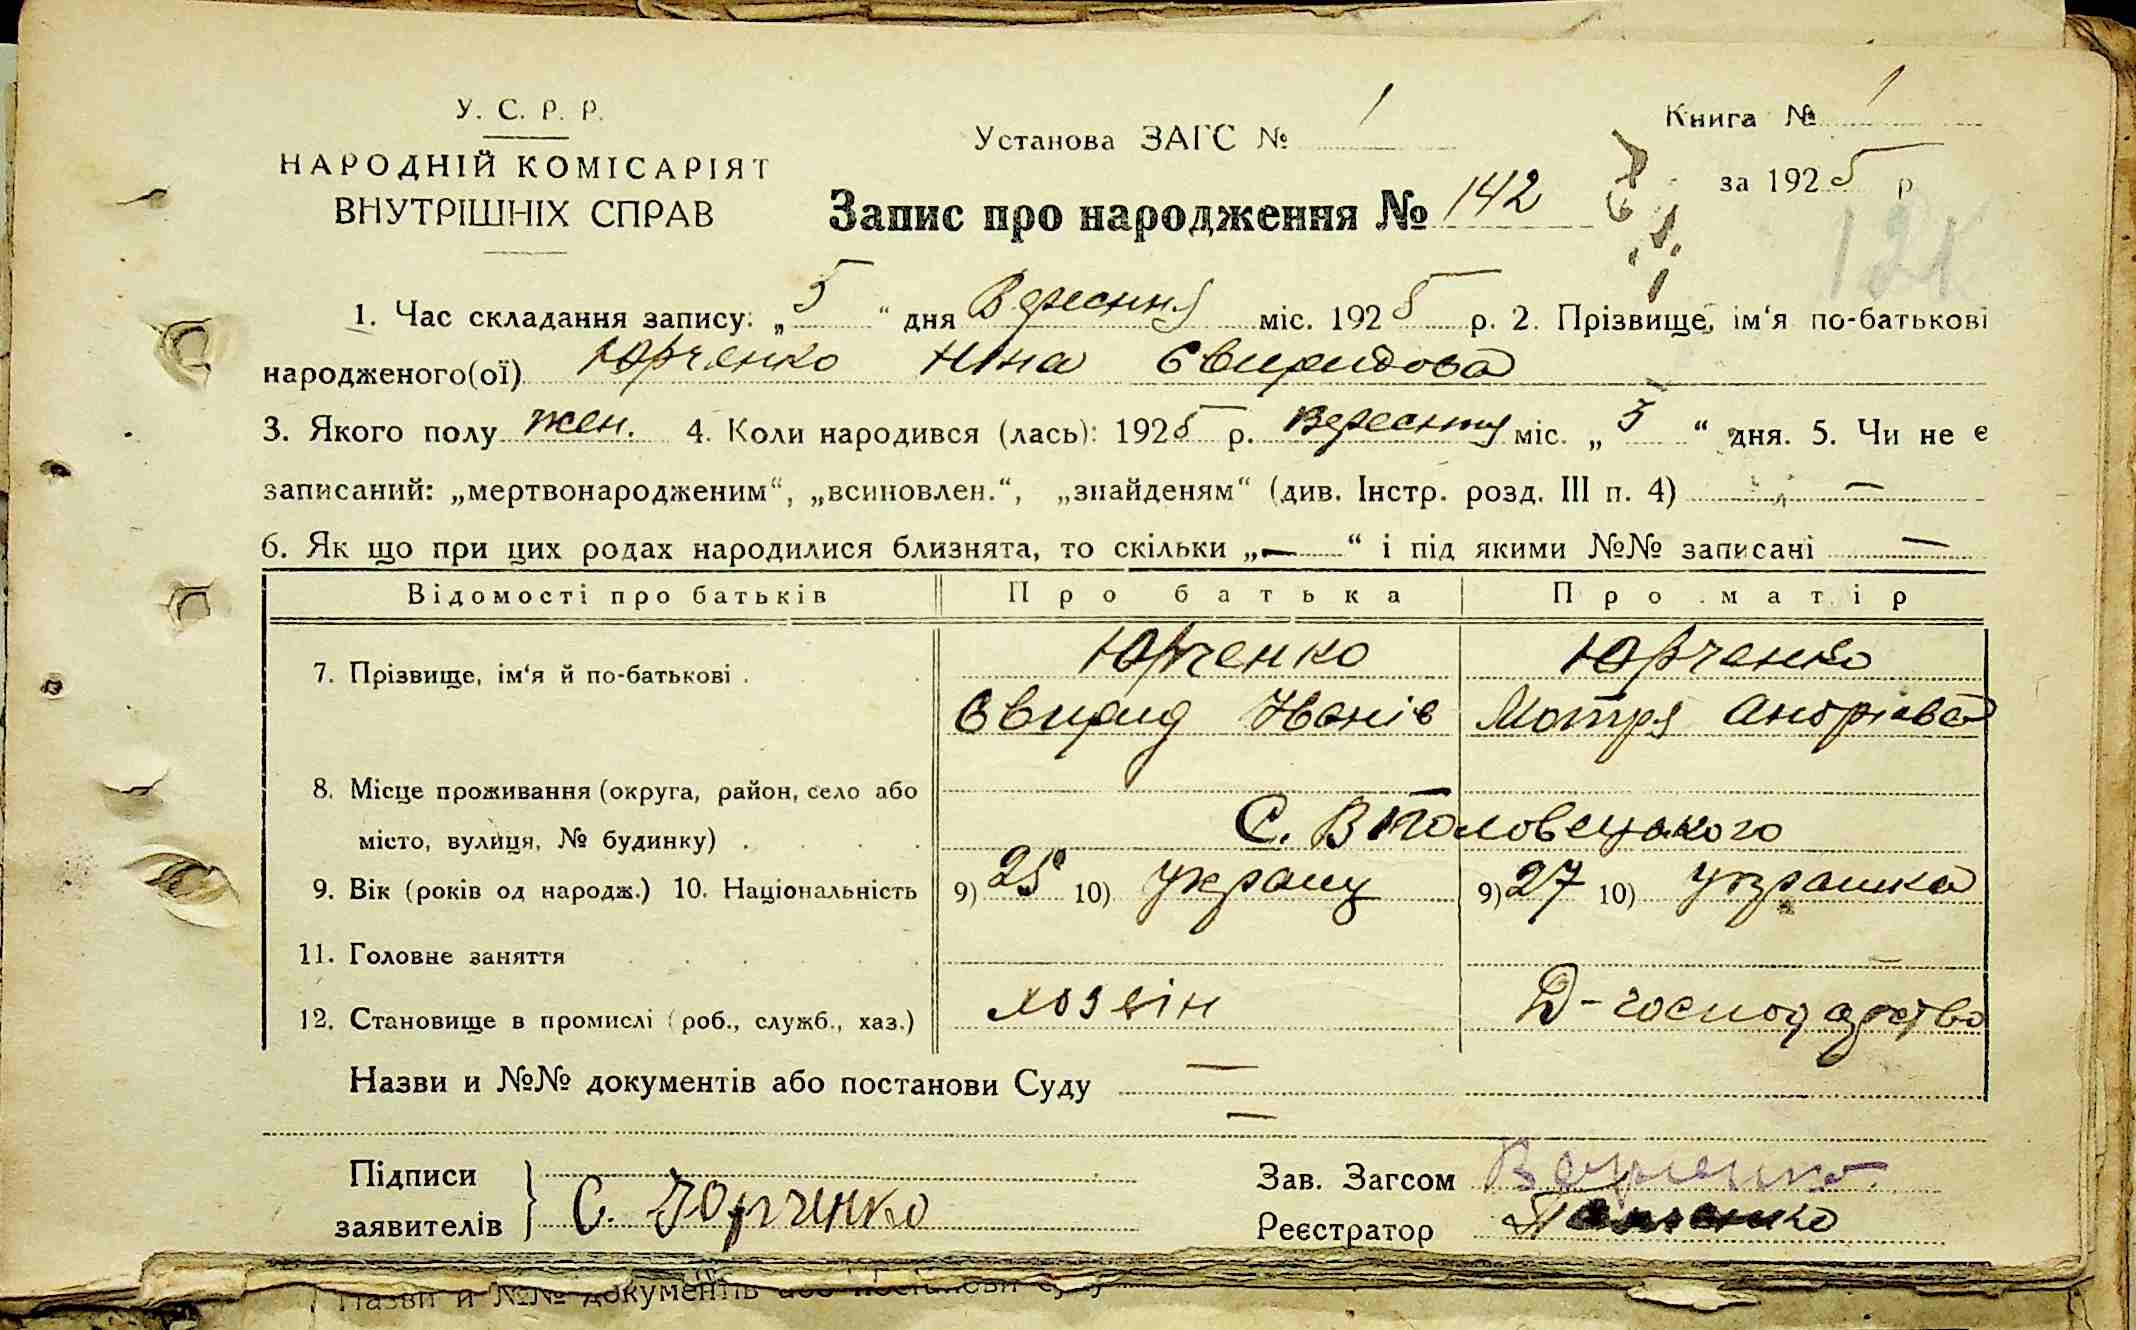 У. С. Р. Р.
НАРОДНІЙ КОМІСАРІЯТ
ВНУТРІШНІХ СПРАВ
Установа ЗАГС № 1
Книга № 1
за 1925 р
Запис про народження № 142
12к
1. Час складання запису: „5“ дня Вересня міс. 1925 р. 2. Прізвище, ім'я по-батькові
народженого(ої) Юрченко Ніна Свиридова
3. Якого полу жен. 4. Коли народився (лась): 1925 р. Вересня міс. „5“ дня. 5. Чи не є
записаний: „мертвонародженим“, „всиновлен.“, „знайденям“ (див. Інстр. розд. III п. 4) —
6. Як що при цих родах народилися близнята, то скільки „—“ і під якими №№ записані —
Відомості про батьків Про батька Про матір
7. Прізвище, ім'я й по-батькові . Юрченко Юрченко
Свирид Іванів Мотря Андріева
8. Місце проживання (округа, район, село або
місто, вулиця, № будинку) . С. В Половецького
9. Вік (років од народж.) 10. Національність 9) 25 10) Украинц 9) 27 10) Украинка
11. Головне заняття
12. Становище в промислі (роб., служб., хаз.) хозяін Д-господарство
Назви и №№ документів або постанови Суду —
—
Підписи
заявителів } С. Юрченко
Зав. Загсом
Реєстратор
Назви и №№ документів або постанови Суду